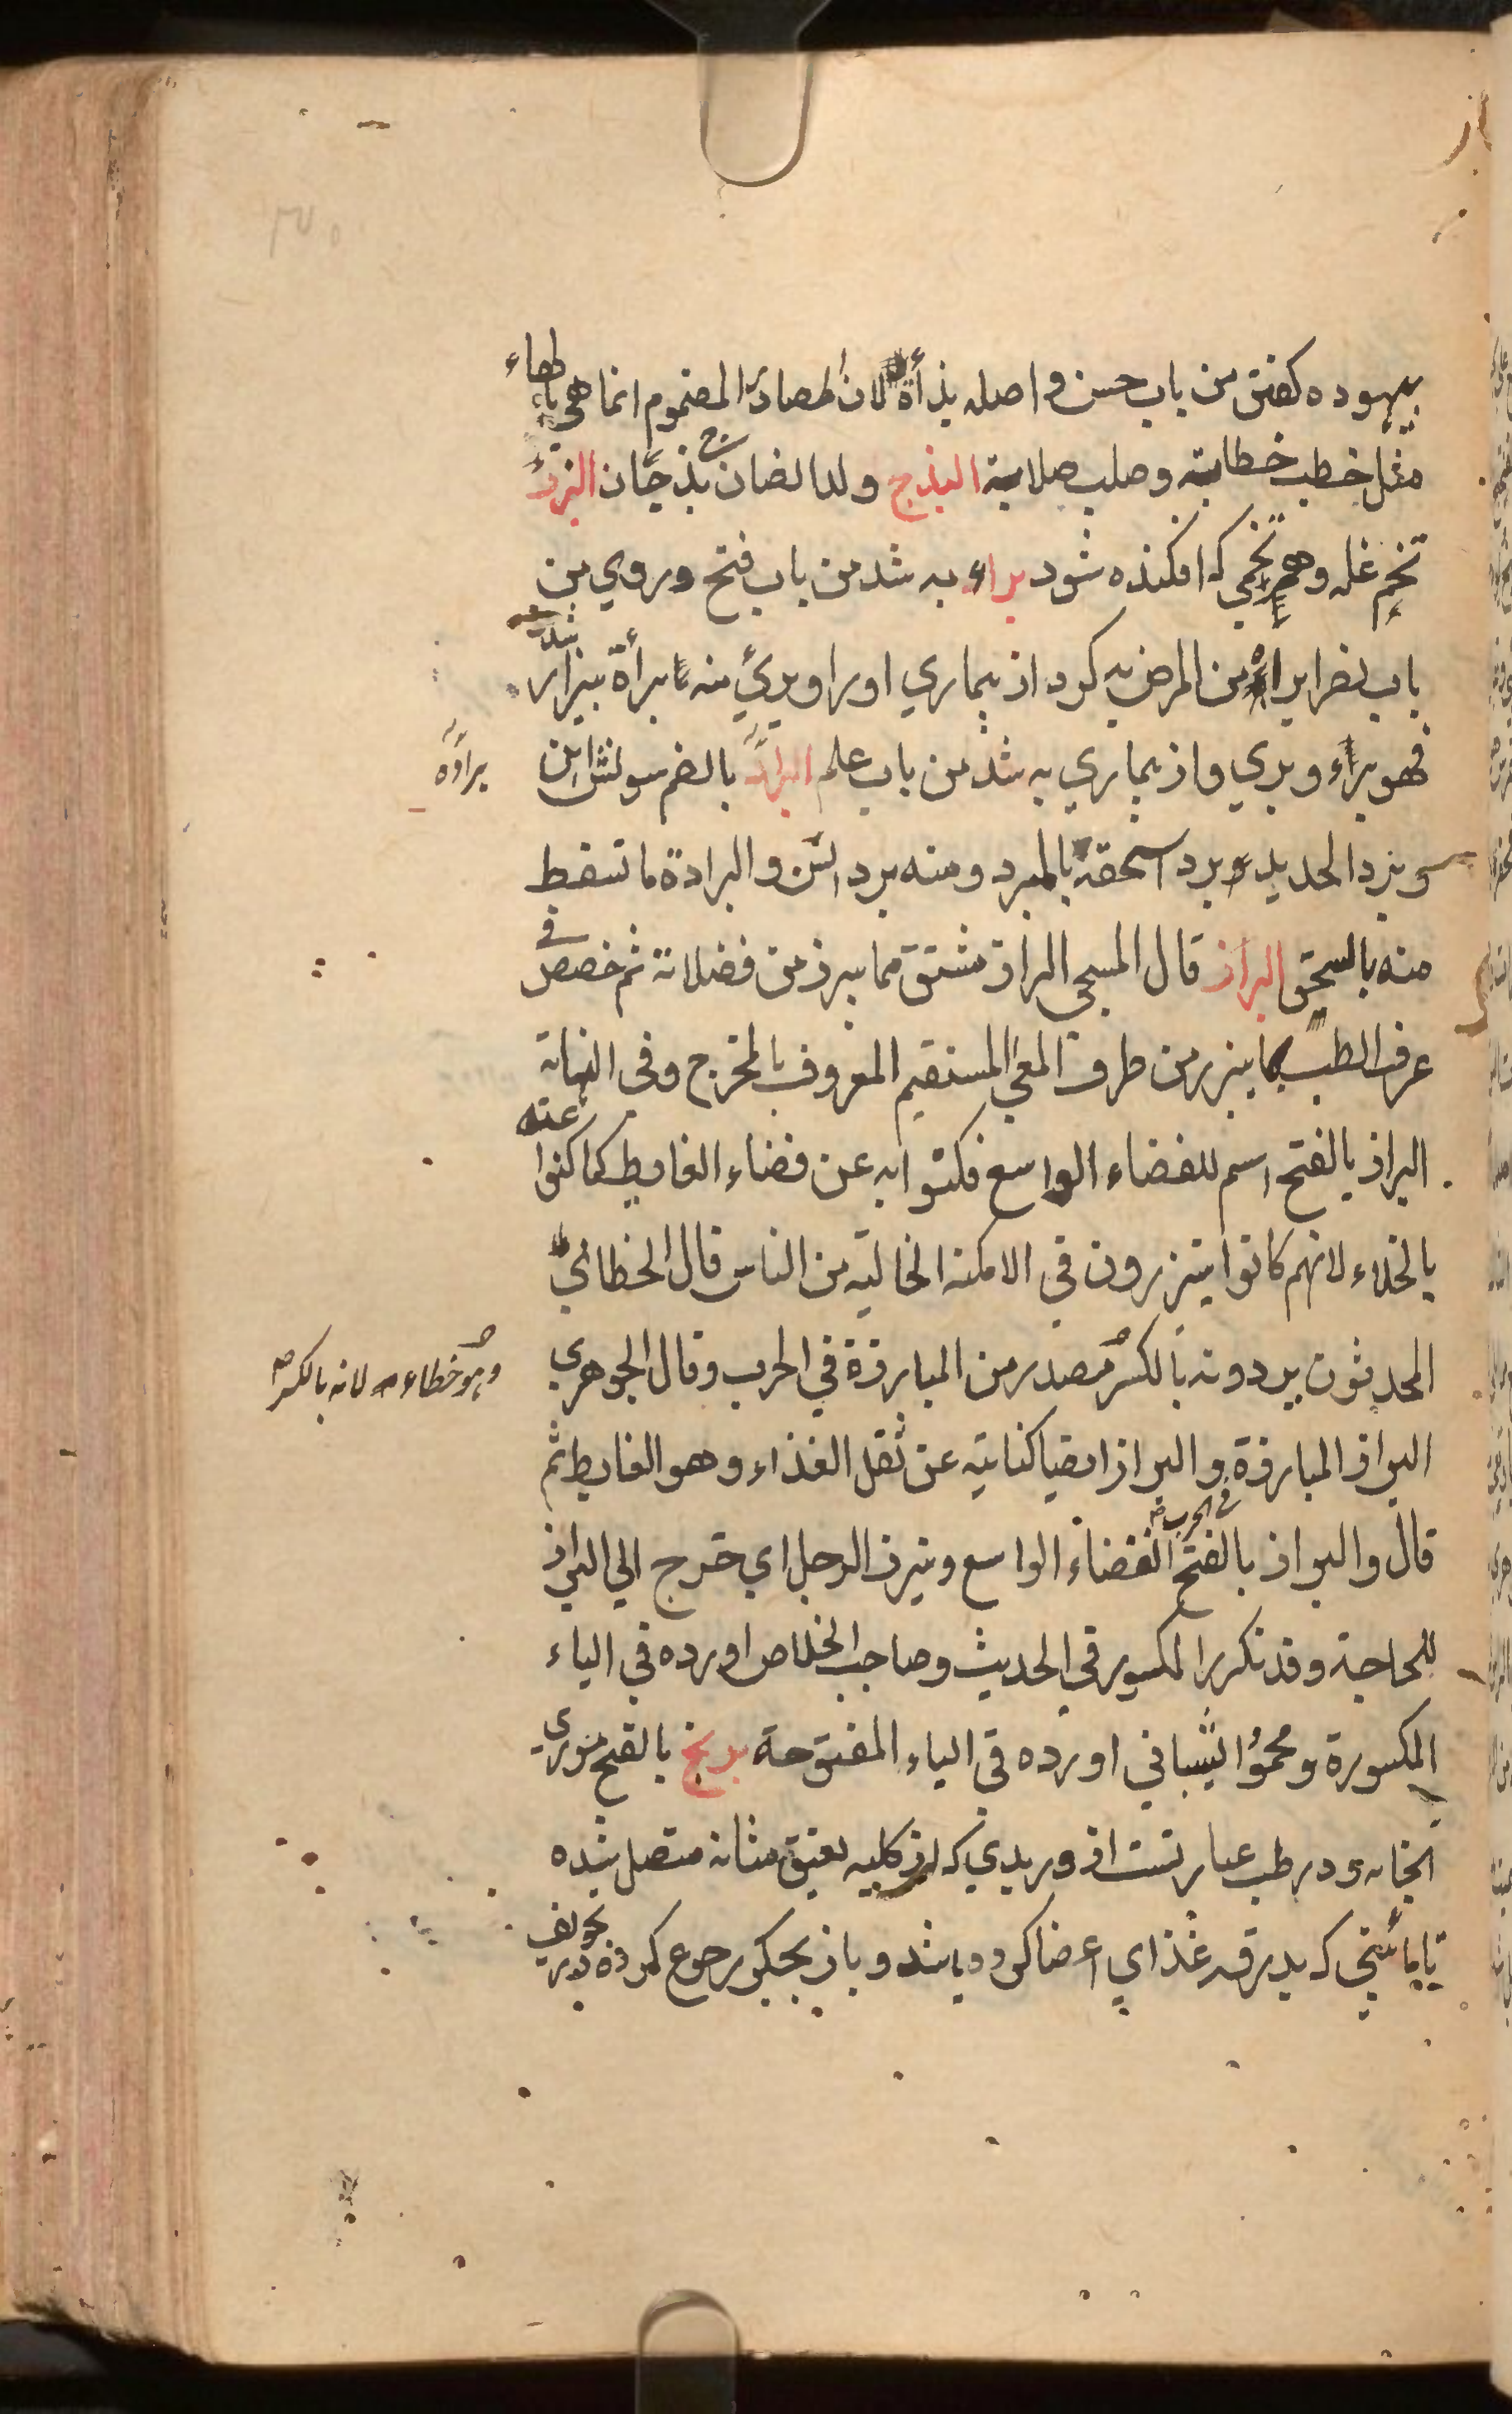 بيهوده كفتن من باب حسن و اصله بذأة لان المصادر المضموم انما هي بالهاء
مثل خطب خطابة وصلب صلابة البذج ولد الضان ج بذجان البزر
تخم غله وهر تخمي كه افكنده شود براء به شد من باب فتح وروي من
باب نصر ابراه من المرض به كرد از بيماري اورا وبرئ منه برأة بيزار شد
فهو براء وبري واز بيماري به شد من باب علم البراد بالضم سونش اهن
براده
وبرد الحديد برد اسحقه بالمبرد ومنه برد السن والبرادة ما تسقط
منه بالسحق البراز قال المسيحي البراز مشتق مما يبرز من فضلاته ثم خصص في
عرف الطب بما يبرز من طرف المعي المستقيم المعروف بالمخرج وفى النهاية
البراز بالفتح اسم للفضاء الواسع فكنوا به عن قضاء الغايط كما كنوا عنه
بالخلاء لانهم كانوا يتبرزون في الامكنة الخالية من الناس قال الخطابي
المحدثون يردونه بالكسر مصدر من المبارزة في الحرب وقال الجوهري
وهو خطاء لانه بالكسر
البراز المبارزة والبراز ايضا كناية عن ثقل الغذاء وهو الغايط ثم
في الحرب
قال والبراز بالفتح الفضاء الواسع وتبرز الرجل اي خرج الي البراز
للحاجة وقد تكرر المكسور في الحديث وصاحب الخلاص اورده في الباء
المكسورة ومحمود الشيباني اورده في الباء المفتوحة بربخ بالفتح موري
ابخانه ودر طب عبارتست از وريدي كه از كليه بعنق مثانه متصل شده
تا مائتي كه بدرقه غذاي اعضا كرده باشد وباز بجكر رجوع كرده تجويف